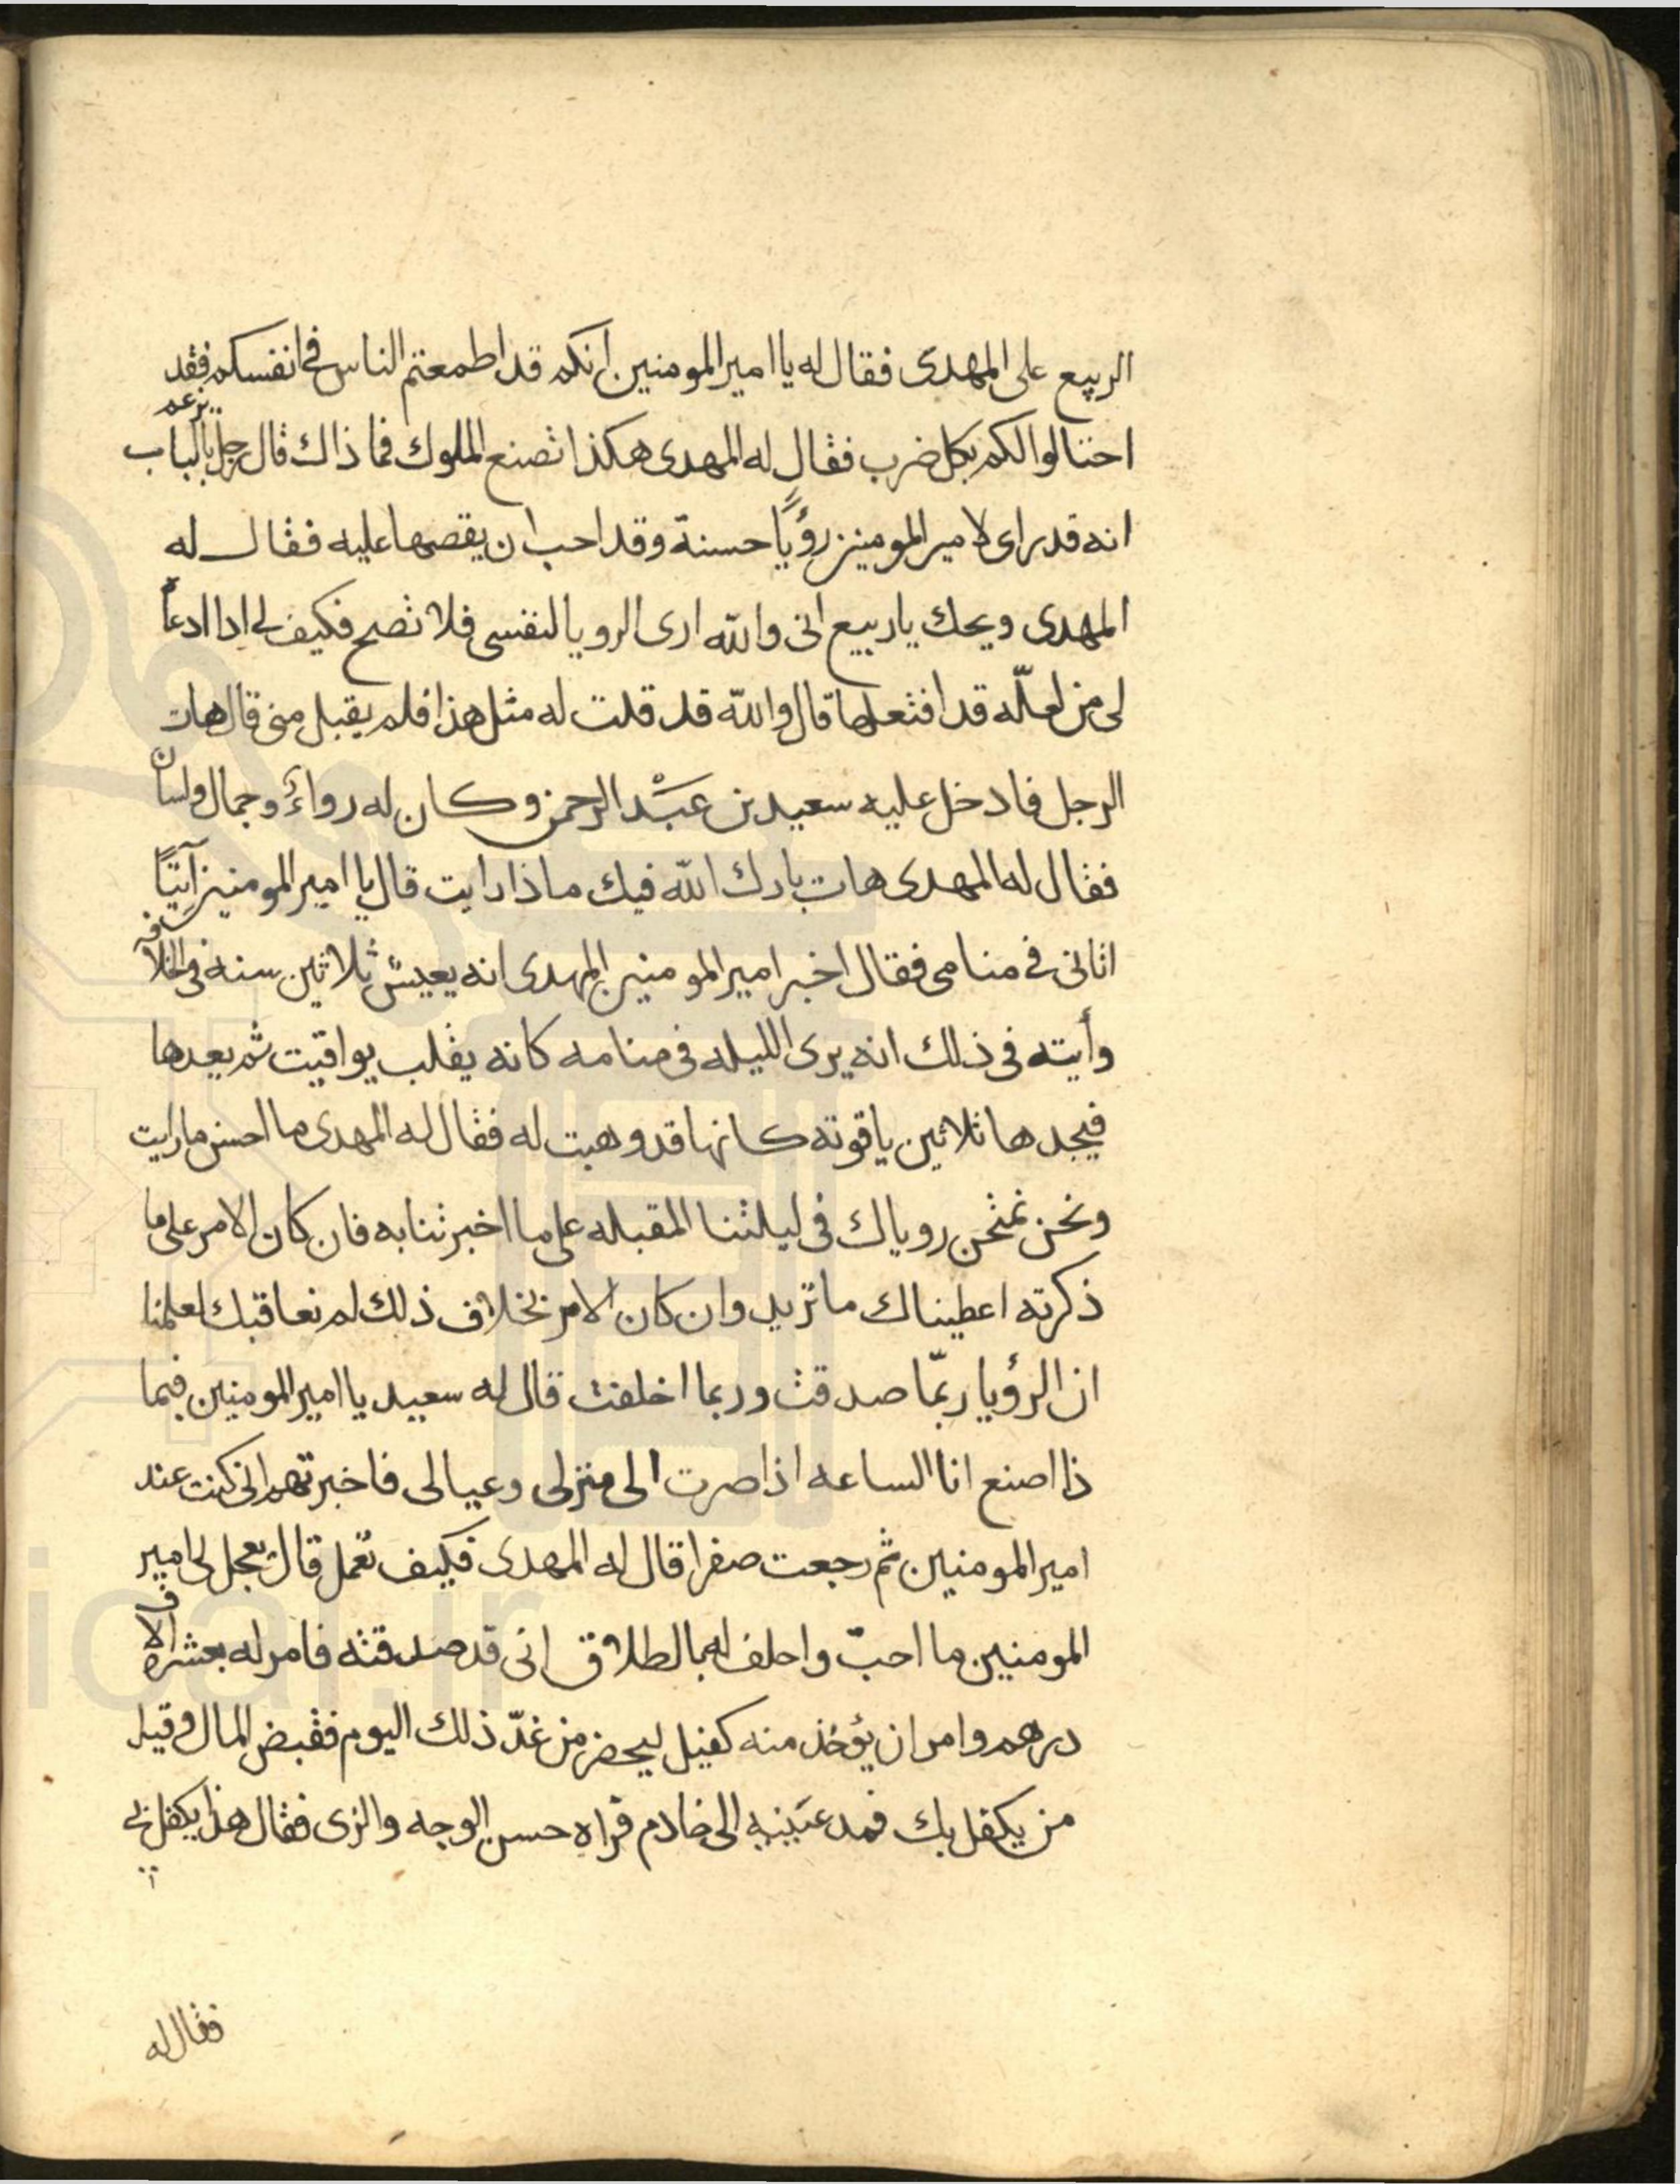 الربيع على المهدى فقال له يا امير المومنين انكم قد اطمعتم الناس فى انفسكم فقد
احتالوا لكم بكل ضرب فقال له المهدى هكذا تصنع الملوك فما ذاك قال رجل بالباب يزعم
انه قد راى لامير المومنين رؤيا حسنة وقد احب ان يقصها عليه فقال له
المهدى ويحك يا ربيع انى والله ارى الرويا لنفسى فلا تصح فكيف لى اذا ادعا
لى من لعلّه قد افتعلها قال والله قد قلت له مثل هذا فلم يقبل منى قال هات
الرجل فادخل عليه سعيد بن عبد الرحمن وكان له رواء وجمال ولسان
فقال له المهدى هات بارك الله فيك ماذا رايت قال يا امير المومنين آتيًا
اتانى فى منامى فقال اخبر امير المومنين المهدى انه يعيش ثلاثين سنه فى الخلافه
وأيته فى ذلك انه يرى الليله فى منامه كانه يقلب يواقيت ثم يعدها
فيجدها ثلاثين ياقوته كانها قد وهبت له فقال له المهدى ما احسن ما رايت
ونحن نمتحن روياك فى ليلتنا المقبله على ما اخبرتنا به فان كان الامر على ما
ذكرته اعطيناك ما تريد وان كان الامر بخلاف ذلك لم نعاقبك لعلمنا
ان الرؤيا ربمّا صدقت وربما اخلفت قال له سعيد يا امير المومنين فيما
ذا اصنع انا الساعه اذا صرت الى منزلى وعيالى فاخبرتهم انى كنت عند
امير المومنين ثم رجعت صفرا قال له المهدى فكيف نعمل قال يعجل لى امير
المومنين ما احبّ واحلف له بالطلاق انى قد صدقته فامر له بعشرة الاف
درهم وامر ان يؤخذ منه كفيل ليحضر من غدّ ذلك اليوم فقبض المال وقيل
من يكفل بك فمد عَينيه الى خادم فراه حسن الوجه والزى فقال هذا يكفل بى
فقال له